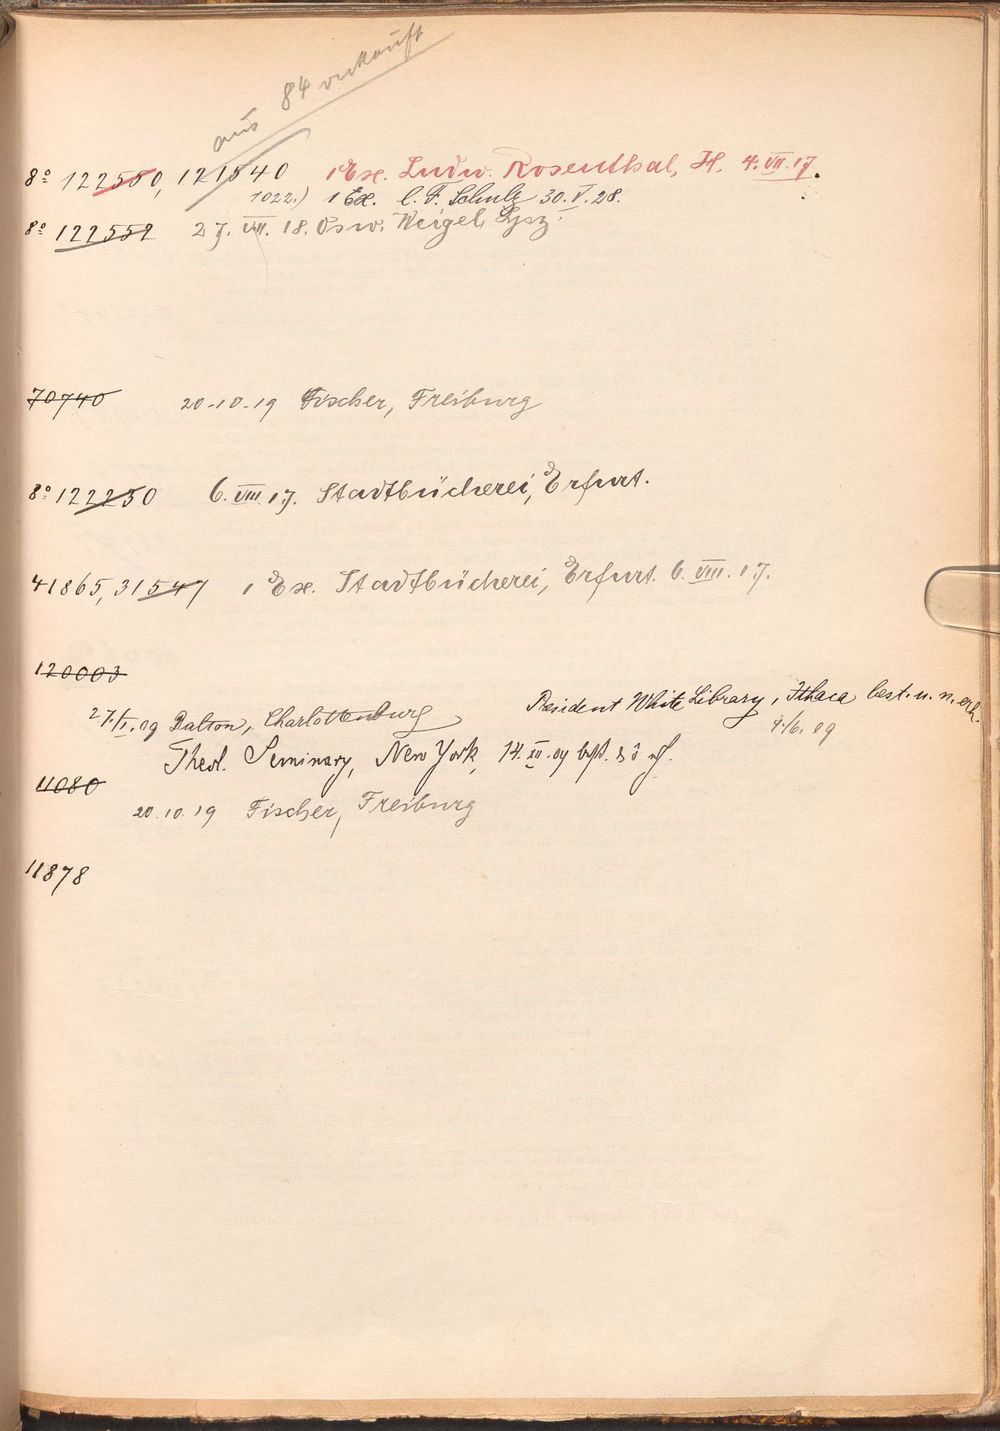 aus 84 verkauft
8° 122550, 121540 1 Ex. Ludw. Rosenthal, H. 4. VII. 17.
1022.) 1 Ex. C. F. Schulz 30. V. 28.
8° 122552 27. VII. 18. Osw. Weigel, Lpz.
70740 20-10-19 Fischer, Freiburg
8° 122230 6. VIII. 17. Stadtbücherei, Erfurt.
41865, 31547 1 Ex. Stadtbücherei, Erfurt. 6. VIII. 17.
120003
27/II.09 Dalton, Charlottenburg
President White Library, Ithaca best. u. n. erh.
9./6. 09
Theol. Seminary, New York, 14. 09
11080
20.10.19 Fischer, Freiburg
11878